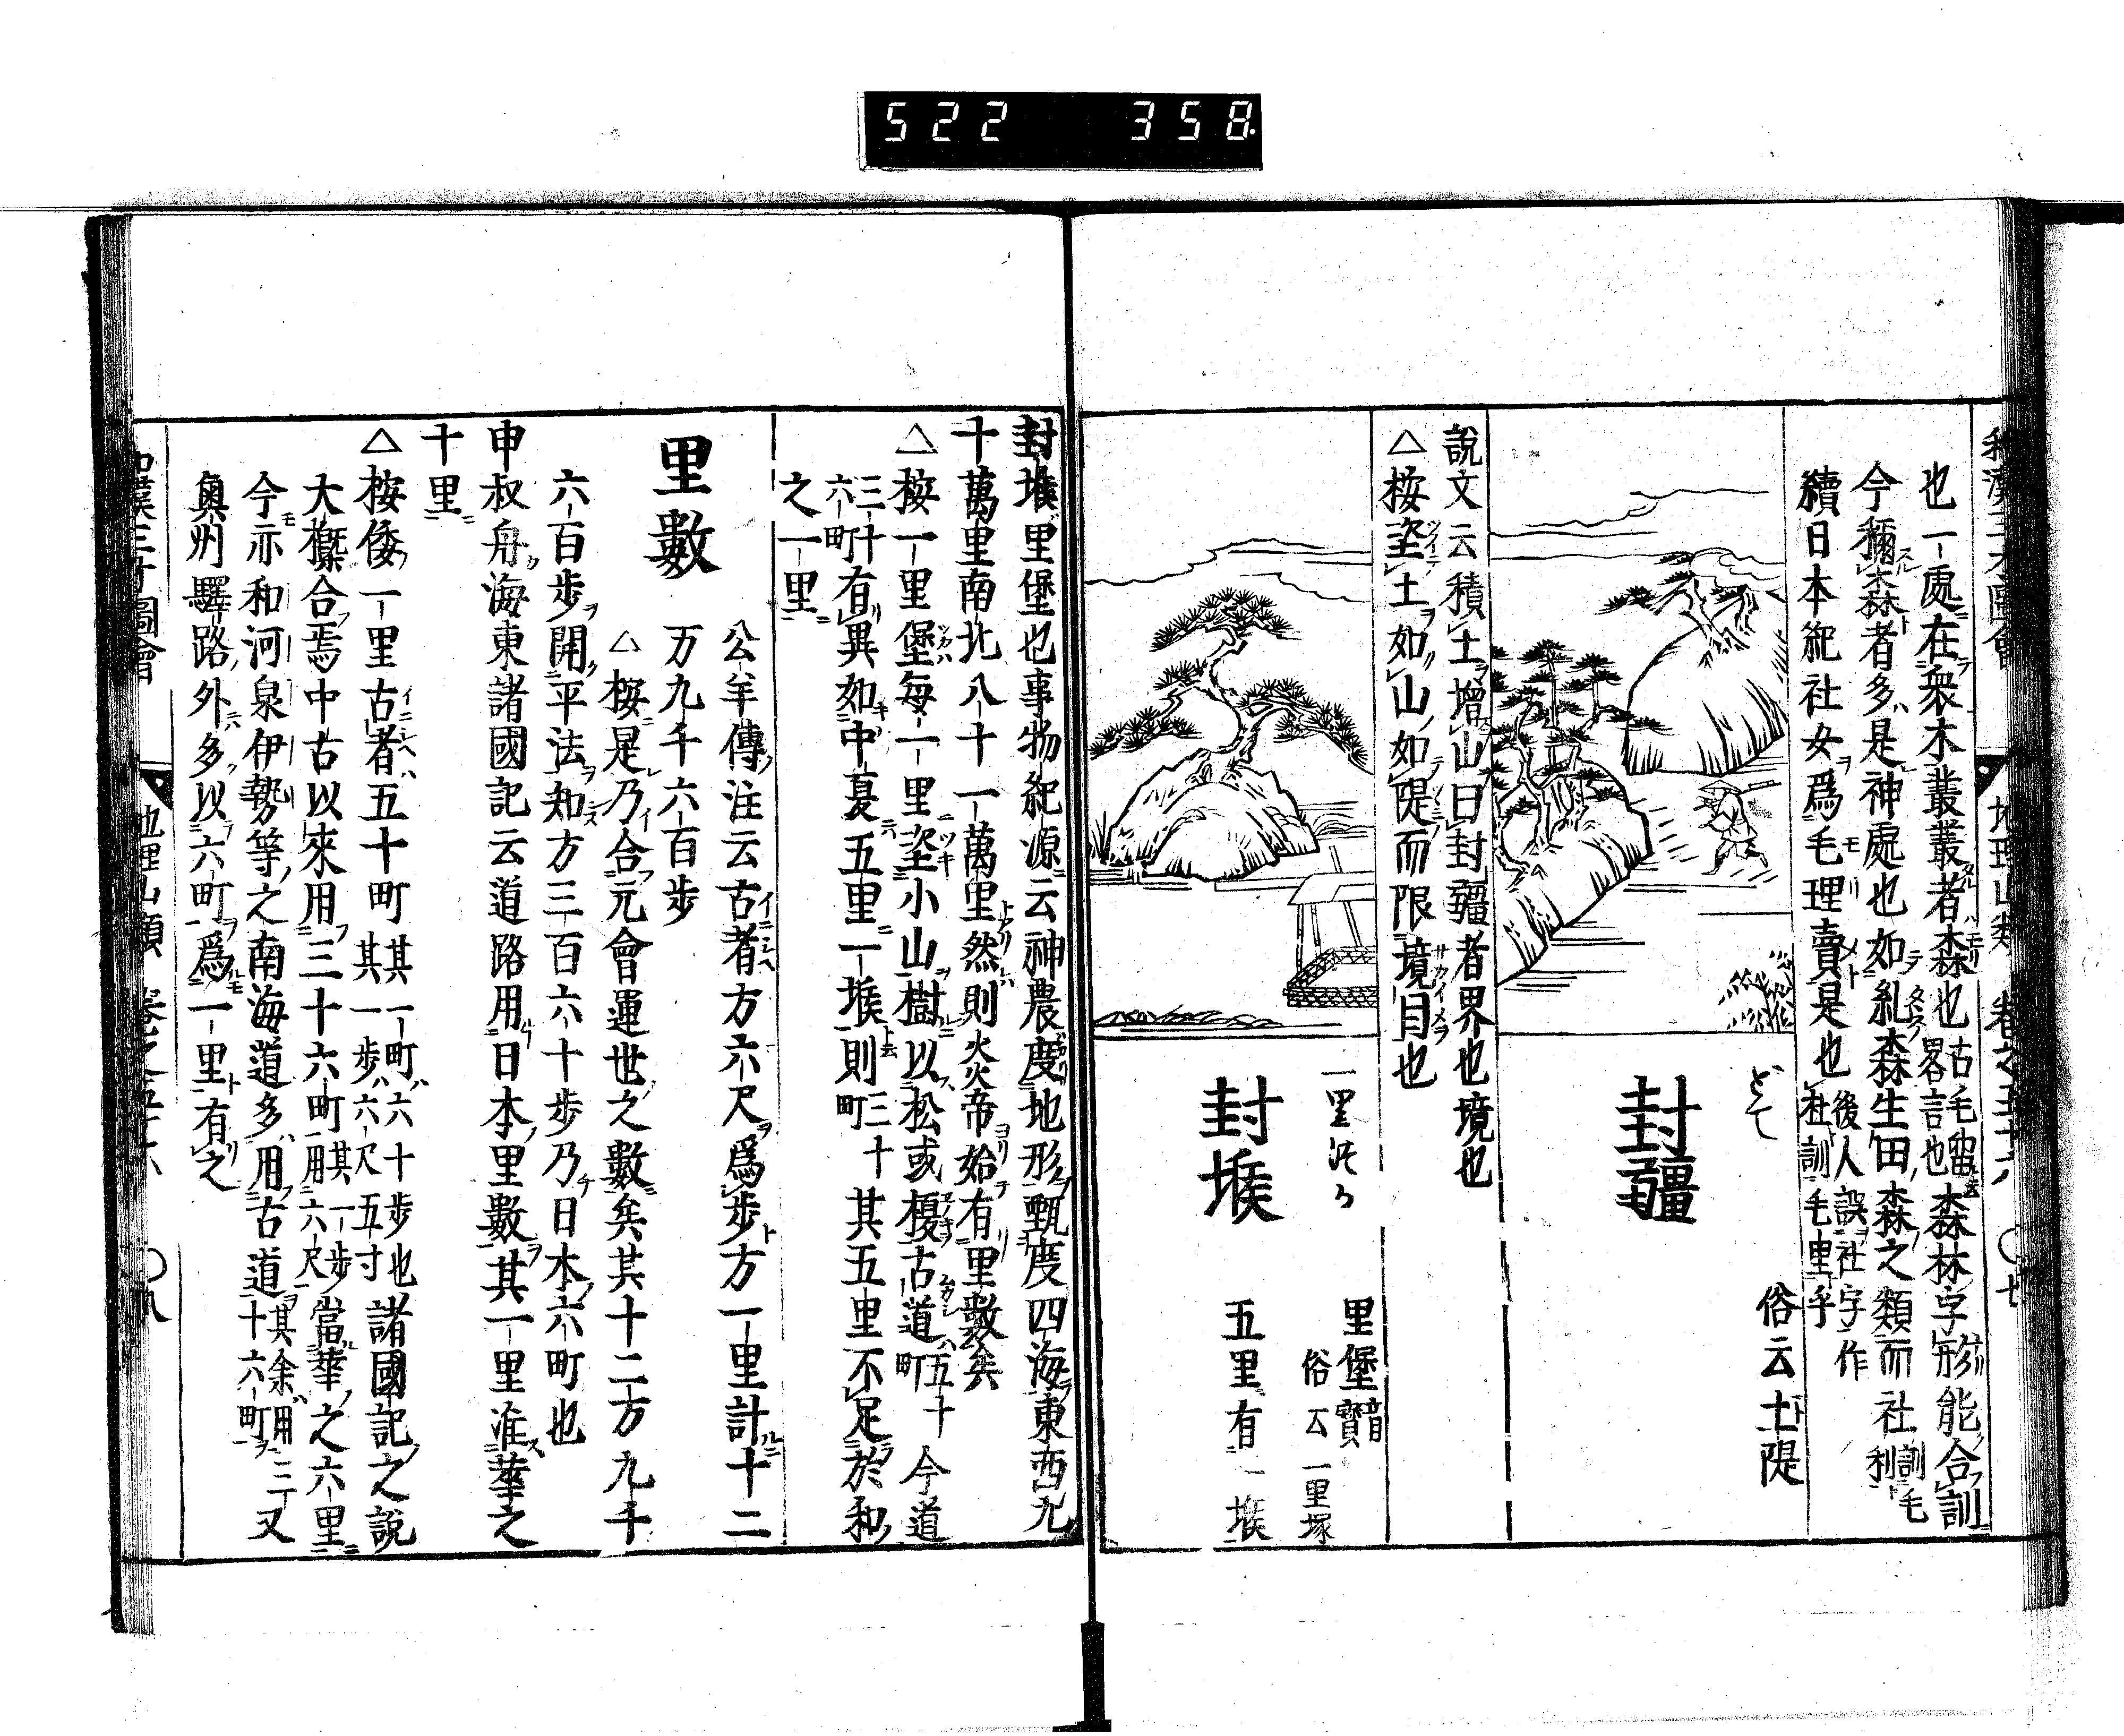 522 358
和漢三才圖會 地理山類 卷之五十六 〇七
也一處在衆木叢叢者森也古毛畱森林字形能合訓
畧言也
今稱森者多是神處也如糺森生田森之類而社訓毛利
續日本紀社女爲毛理賣是也後人誤社字作
杜訓毛里乎
どて
封疆
俗云土隄
說文云積土增山曰封疆者界也境也
△按坌土如山如隄而限境目也
一里づか
封堠
里堡音寶
俗云一里塚
五里有一堠
封堠里堡也事物紀源云神農度地形甄度四海東西九
十萬里南北八十一萬里然則炎帝始有里數矣
△按一里堡每一里坌小山樹以松或榎古道五十町今道
三十六町有異如中夏五里一堠則三十町其五里不足於和
之一里
里數
公羊傳注云古者方六尺爲步方一里計十二
万九千六百步
△按是乃合元會運世之數矣其十二万九千
六百步開平法知方三百六十步乃日本六町也
申叔舟海東諸國記云道路用日本里數其一里准華之
十里
△按倭一里古者五十町其一町六十步也
其一步六尺五寸諸國記之說
大槩合焉中古以來用三十六町其一步
用六尺當華之六里
今亦和河泉伊勢等之南海道多用古道其余用三
十六町又
奧州驛路外多以六町爲一里有之
和漢三才圖會 地理山類 卷之五十六 〇八